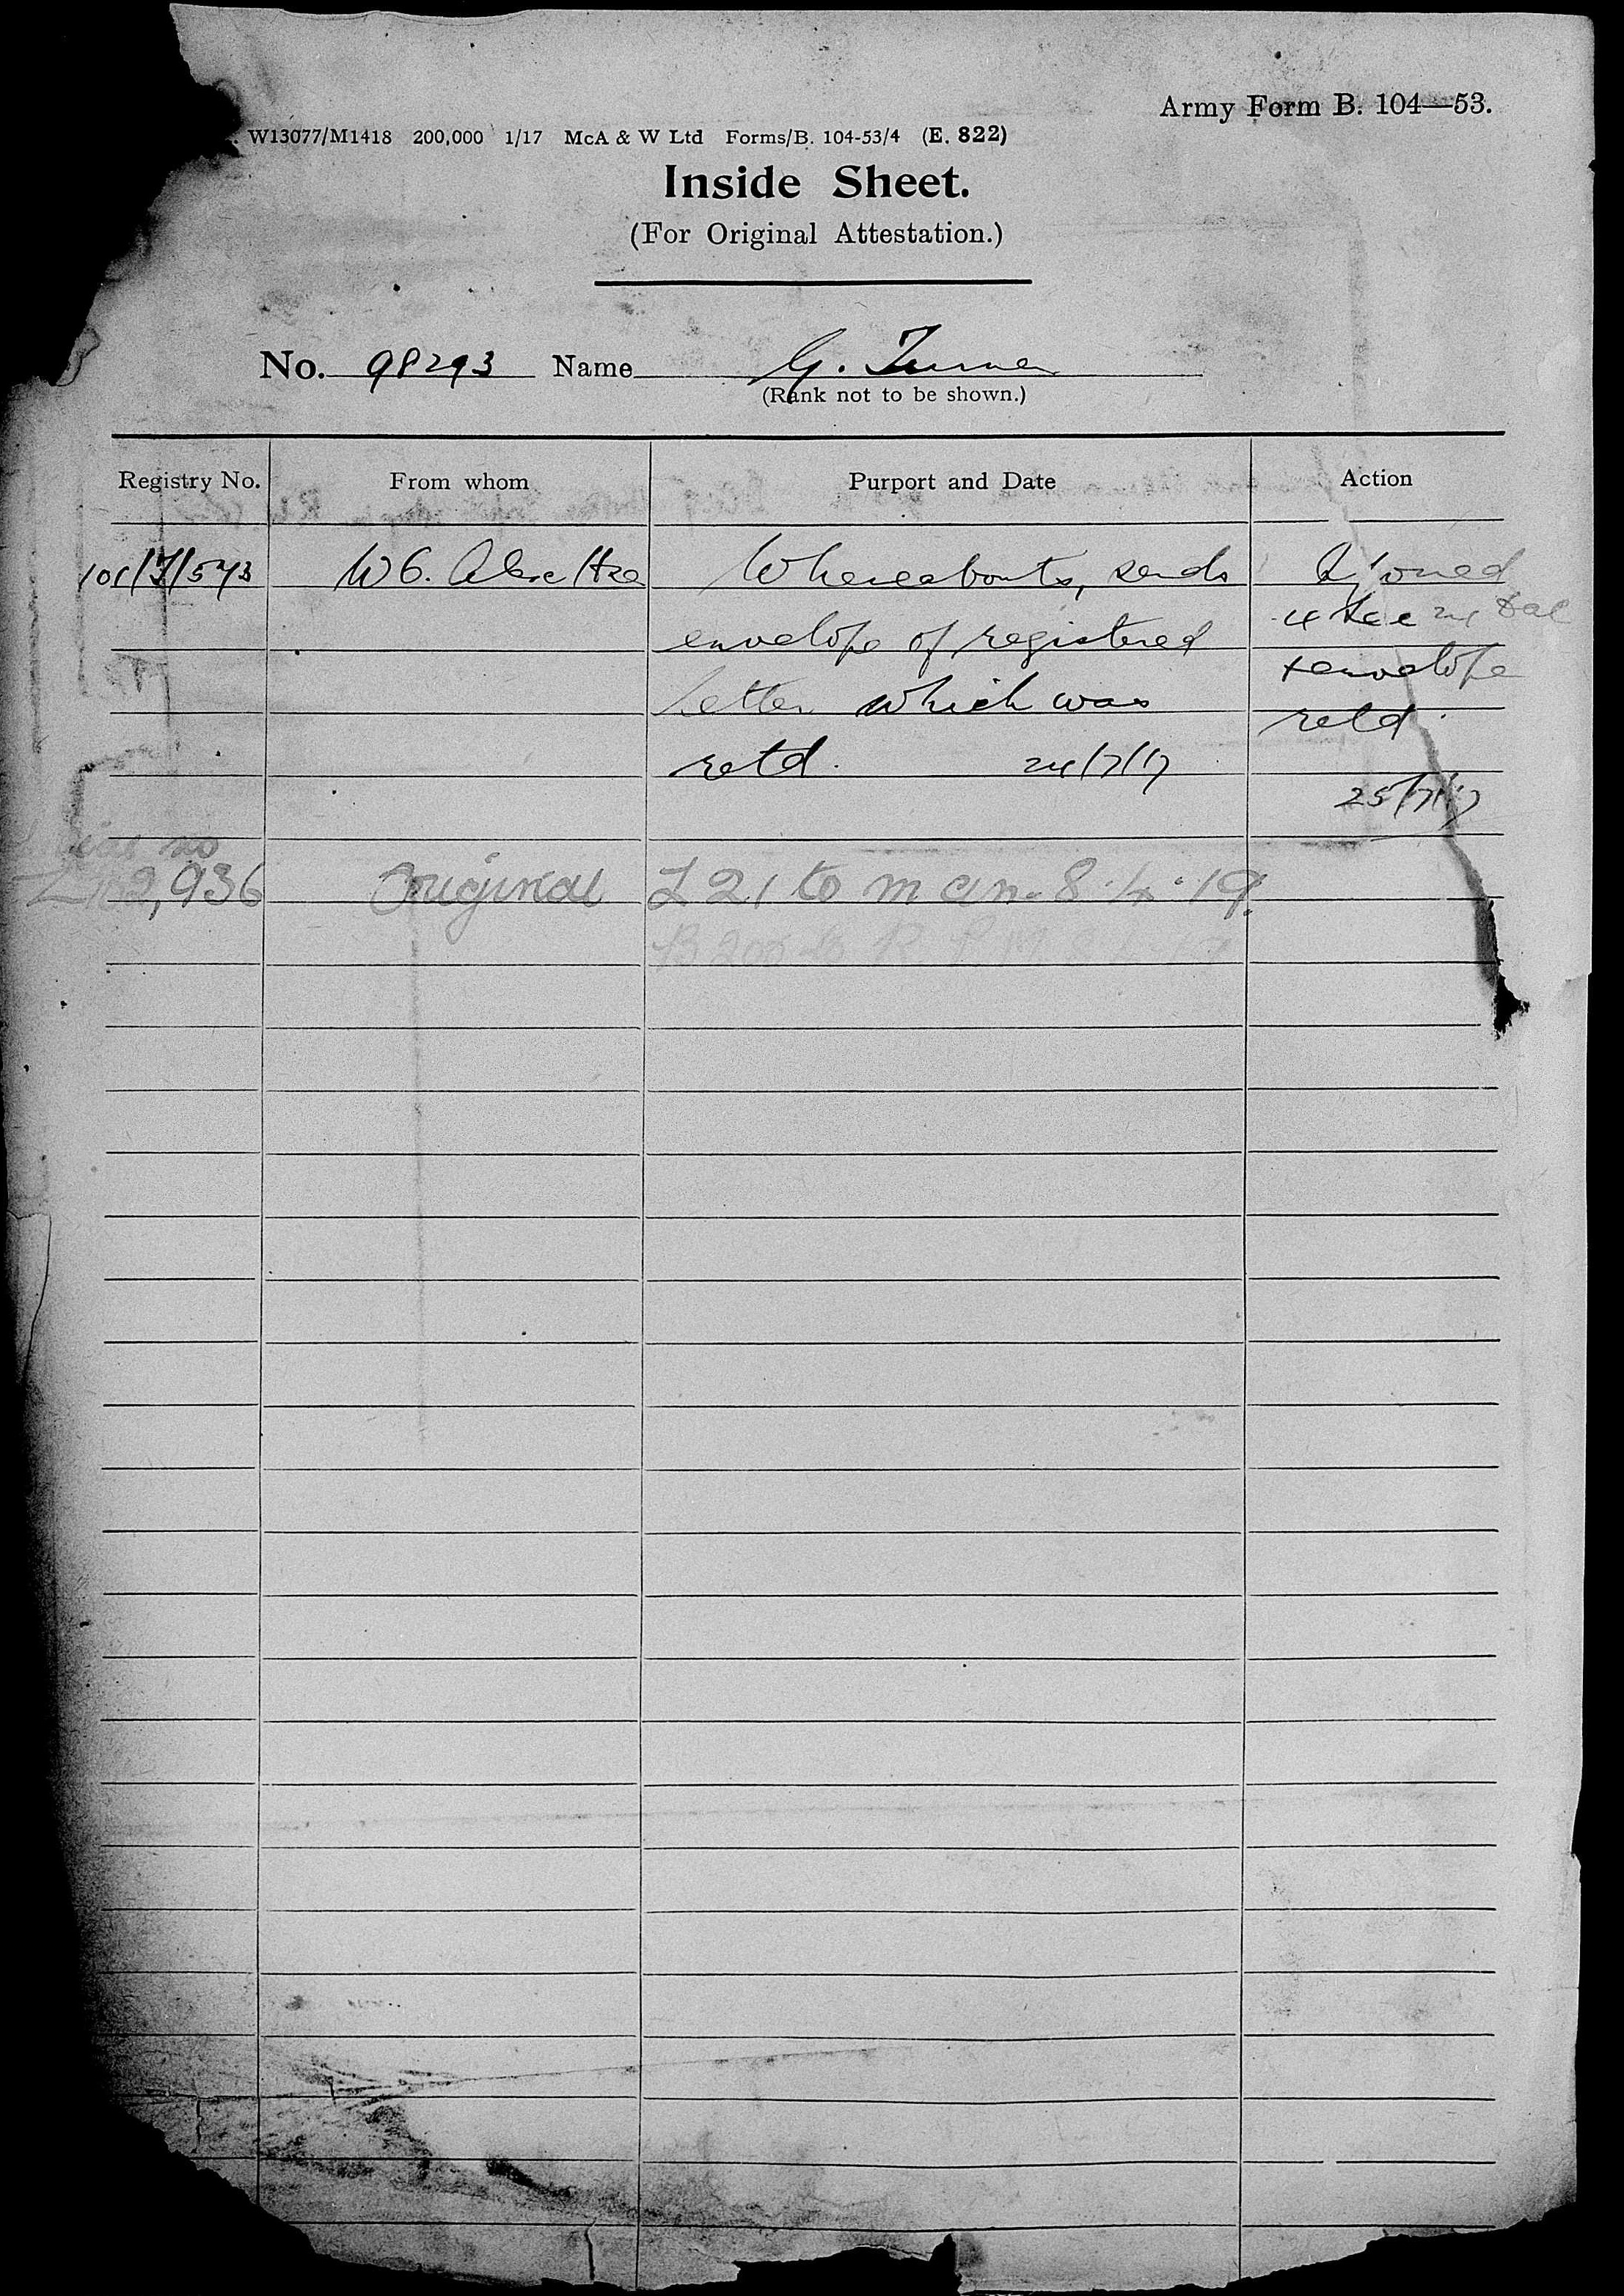 Army Form B. 104—53.
W13077/M1418 200,000 1/17 McA & W Ltd Forms/B. 104-53/4 (E. 822)
Inside Sheet.
(For Original Attestation.)
No. 98293 Name G. Turner
(Rank not to be shown.)
Registry No. From whom Purport and Date Action
Whereabouts, sends
envelope of registered
letter which was
+ envelope
retd.
retd. 24/7/17
25/7/17
no
2,936 Original Z 21 to man. 8.4.19.